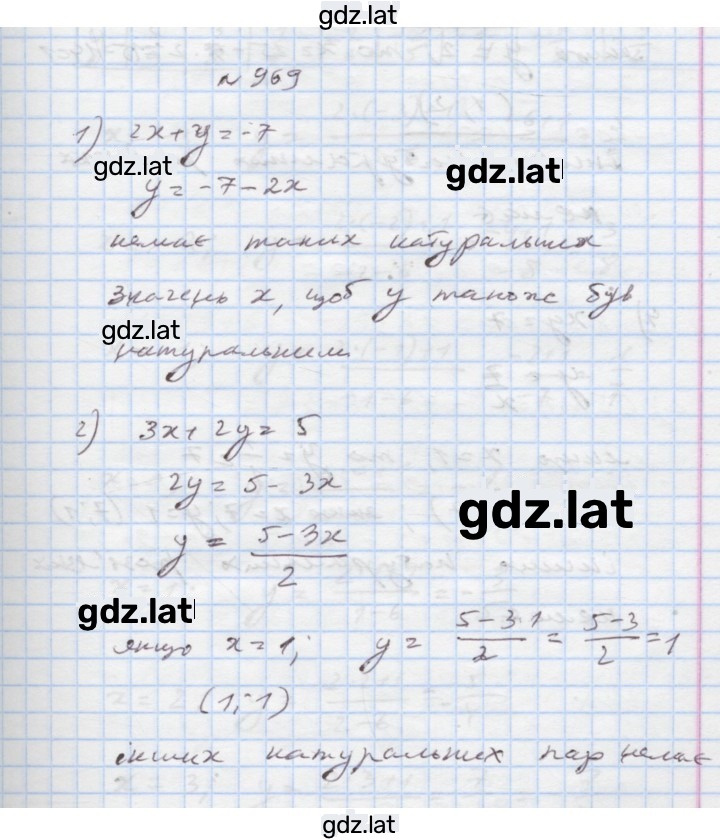 gdz.lat
№ 969
1) 2x + y = -7
gdz.lat
gdz.lat
y = -7 - 2x
немає таких натуральних
значень x, щоб y також був
gdz.lat
натуральним
2) 3x + 2y = 5
2y = 5 - 3x
gdz.lat
y = (5 - 3x)/2
gdz.lat
якщо x = 1; y = (5 - 3·1)/2 = (5 - 3)/2 = 1
(1; 1)
інших натуральних пар немає
gdz.lat